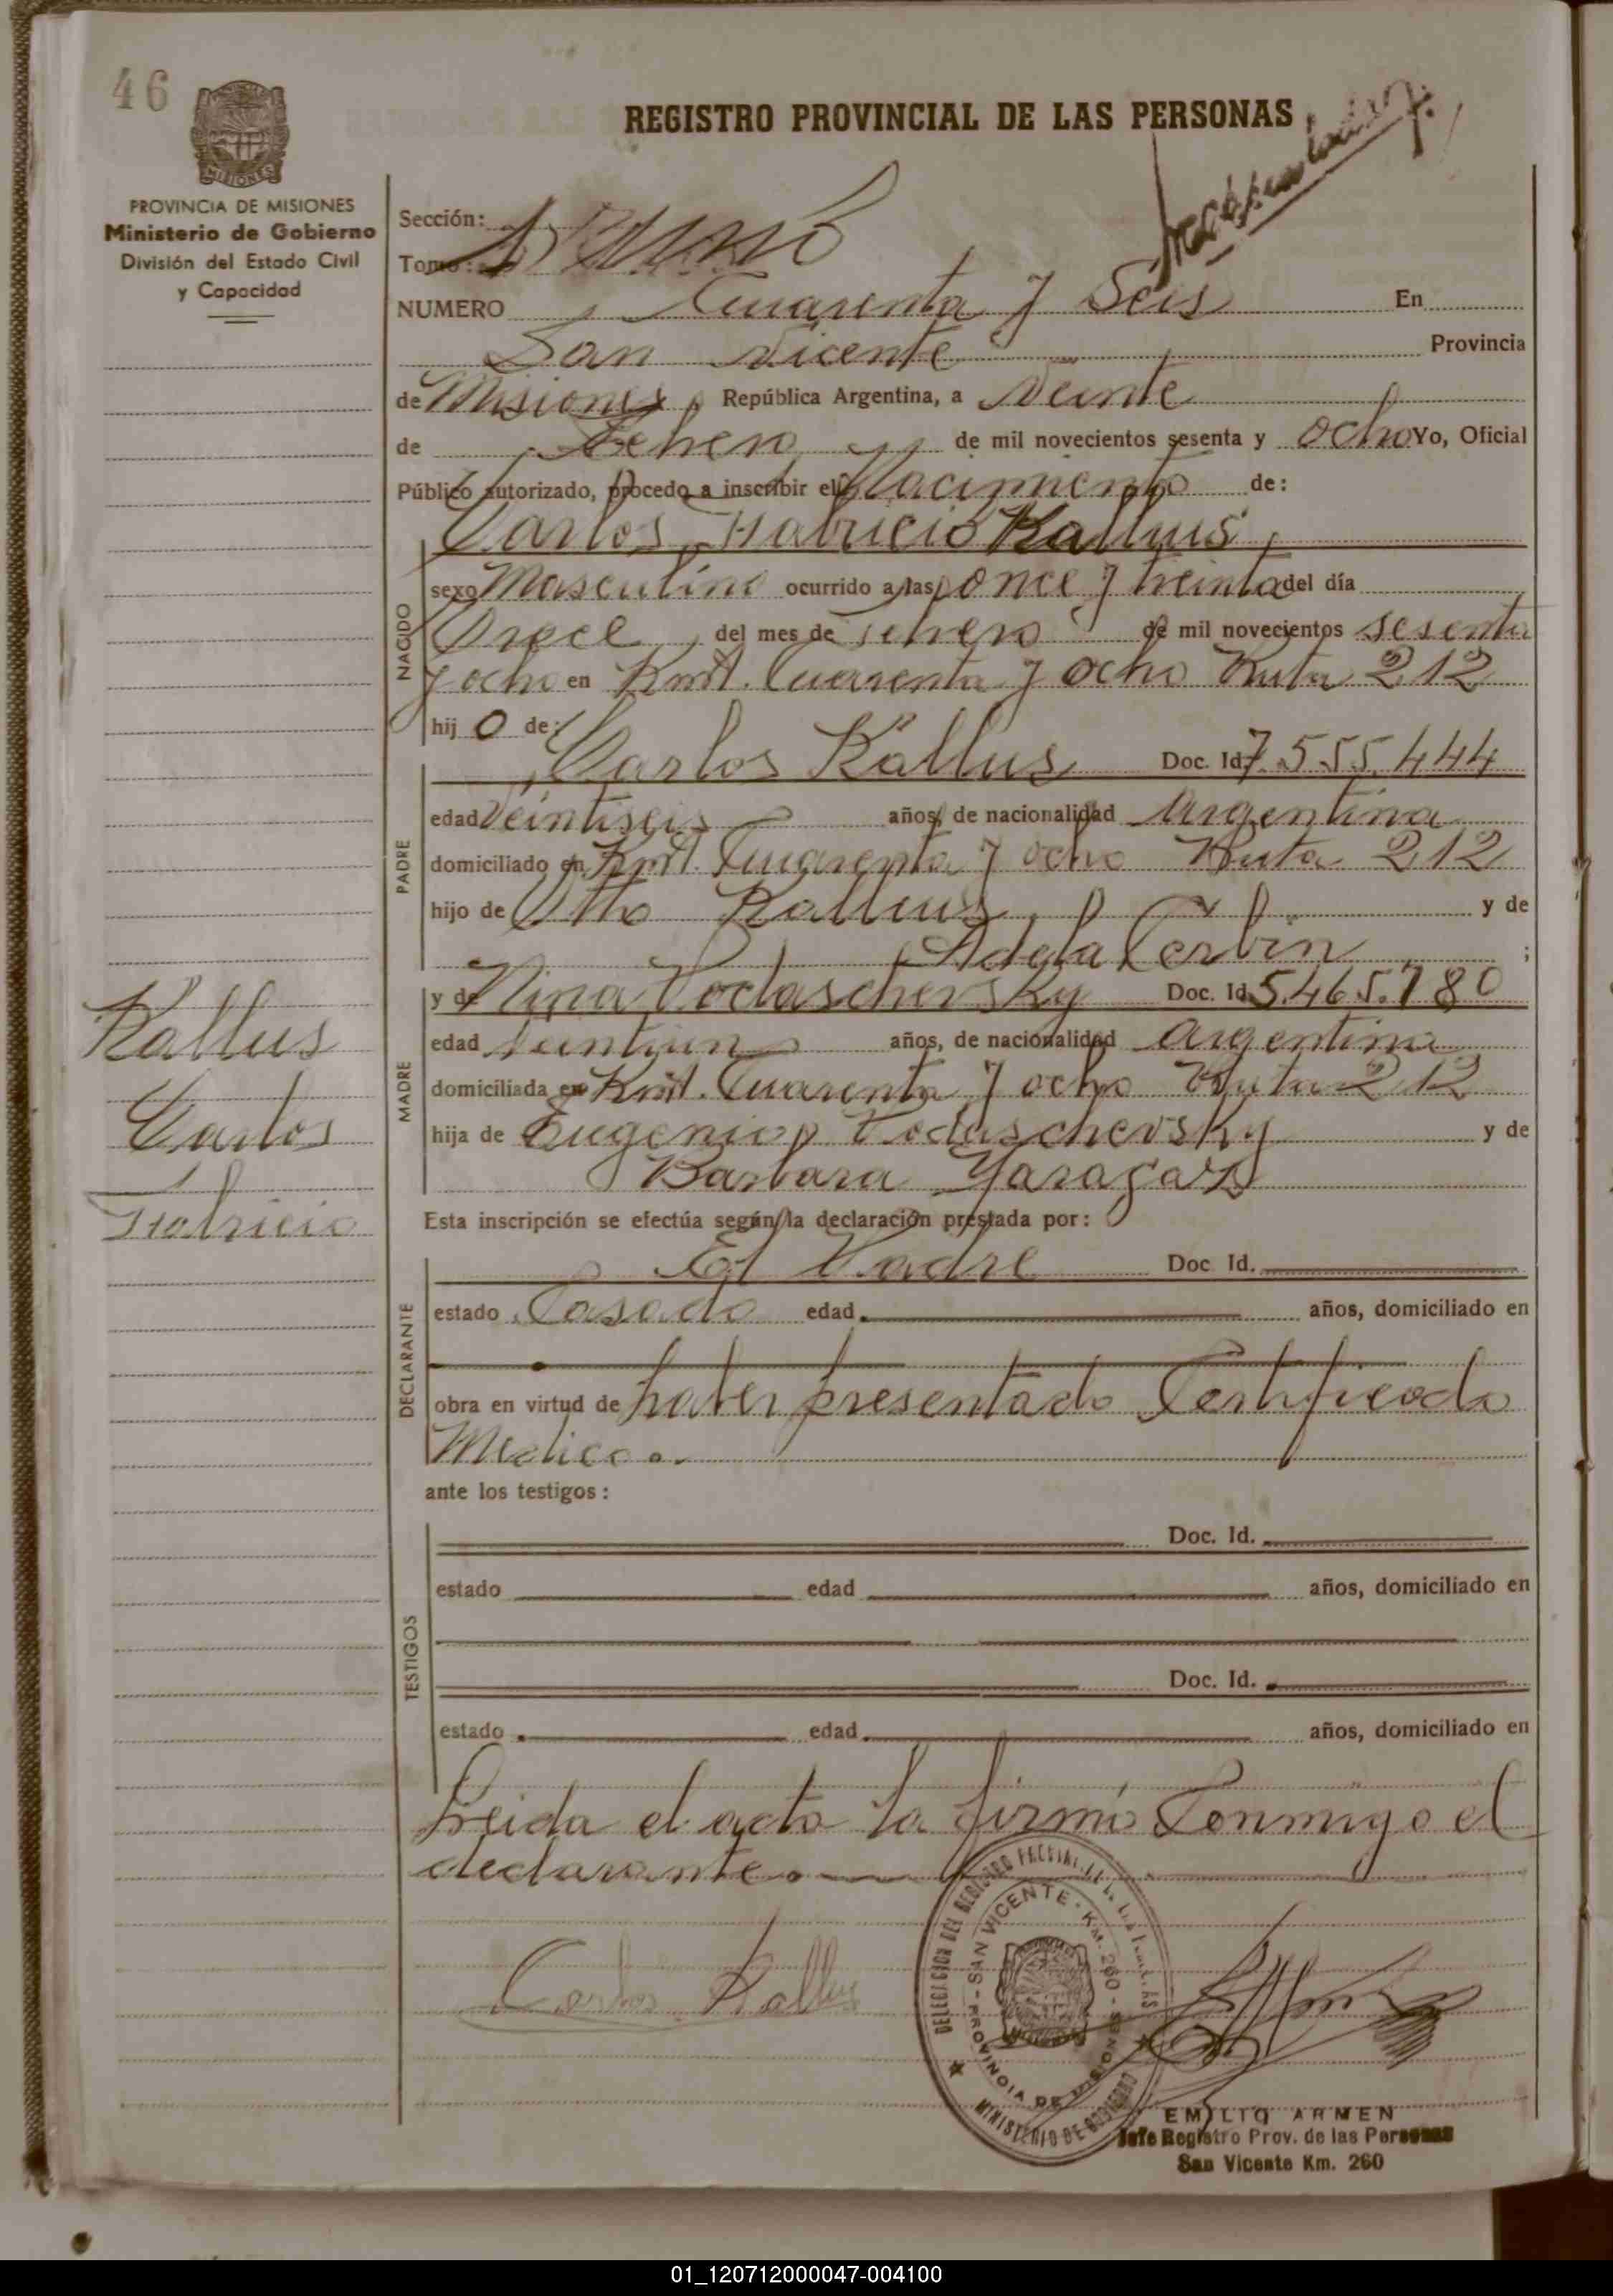 46
REGISTRO PROVINCIAL DE LAS PERSONAS
MISIONES
PROVINCIA DE MISIONES
Ministerio de Gobierno
División del Estado Civil
y Capacidad
Sección:
Tomo:
NUMERO Cuarenta y Seis En
San Vicente Provincia
de Misiones, República Argentina, a Veinte
de Febrero de mil novecientos sesenta y ocho Yo, Oficial
Público autorizado, procedo a inscribir el Nacimiento de:
Carlos Fabricio Kallus
NACIDO
sexo Masculino ocurrido a las once y treinta del día
Trece del mes de Febrero de mil novecientos sesenta
y ocho en Kmt. Cuarenta y ocho Ruta 212
hijo de:
PADRE
Carlos Kallus Doc. Id. 7.555.444
edad Veintiseis años, de nacionalidad Argentina
domiciliado en Kmt. Cuarenta y ocho Ruta 212
hijo de Otto Kallus y de
Adela Cerbin ;
MADRE
y de Nina Podaschevsky Doc. Id. 5.465.780
edad Veintiun años, de nacionalidad Argentina
domiciliada en Kmt. Cuarenta y ocho Ruta 212
hija de Eugenio Podaschevsky y de
Barbara
Kallus
Carlos
Fabricio
Esta inscripción se efectúa según la declaración prestada por:
DECLARANTE
El Padre Doc. Id.
estado Casado edad años, domiciliado en
obra en virtud de haber presentado Certificado
Medico.
ante los testigos:
TESTIGOS
Doc. Id.
estado edad años, domiciliado en
Doc. Id.
estado edad años, domiciliado en
Leida el acta la firmó Conmigo el
declarante.
Carlos Kallus
DELEGACION DEL REGISTRO PROVINCIAL DE LAS PERSONAS
SAN VICENTE - KM. 260 - PROVINCIA DE MISIONES
MINISTERIO DE GOBIERNO
EMILIO ARMEN
Jefe Registro Prov. de las Personas
San Vicente Km. 260
01_120712000047-004100